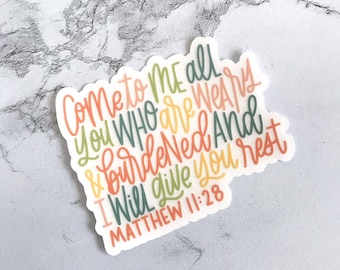 Come to Me all
you who are weary
& burdened and
I will give you rest
MATTHEW 11:28